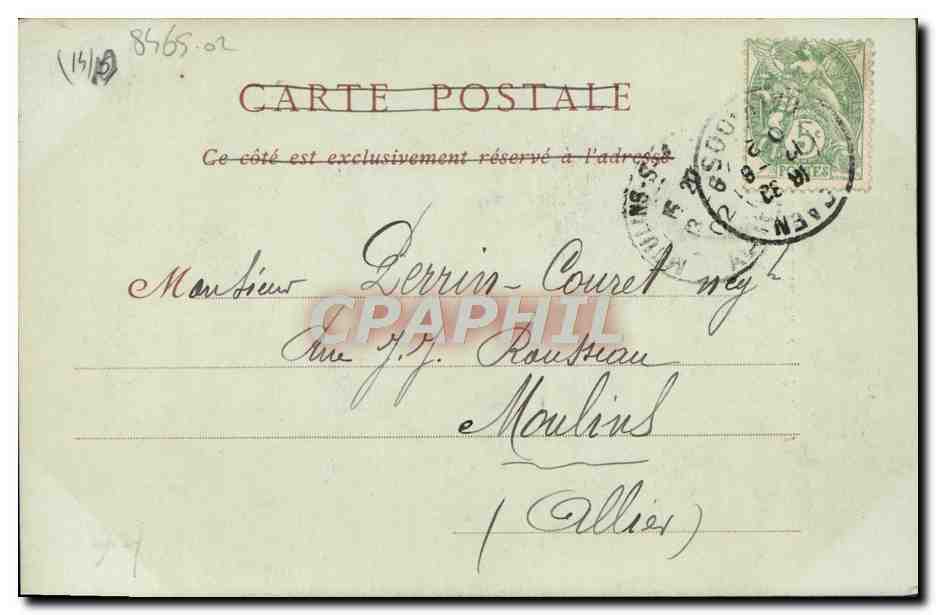 (14/5)
8465.02
CARTE POSTALE
Ce côté est exclusivement réservé à l'adresse
5c
POSTES
CAEN
18 32
MOULINS-S
15
Monsieur Perrin-Couret neg^t
CPAPHIL
Rue J.J. Rousseau
Moulins
(Allier)